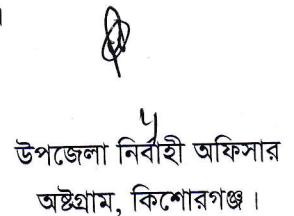 উপজেলা নির্বাহী অফিসার
অষ্টগ্রাম, কিশোরগঞ্জ।